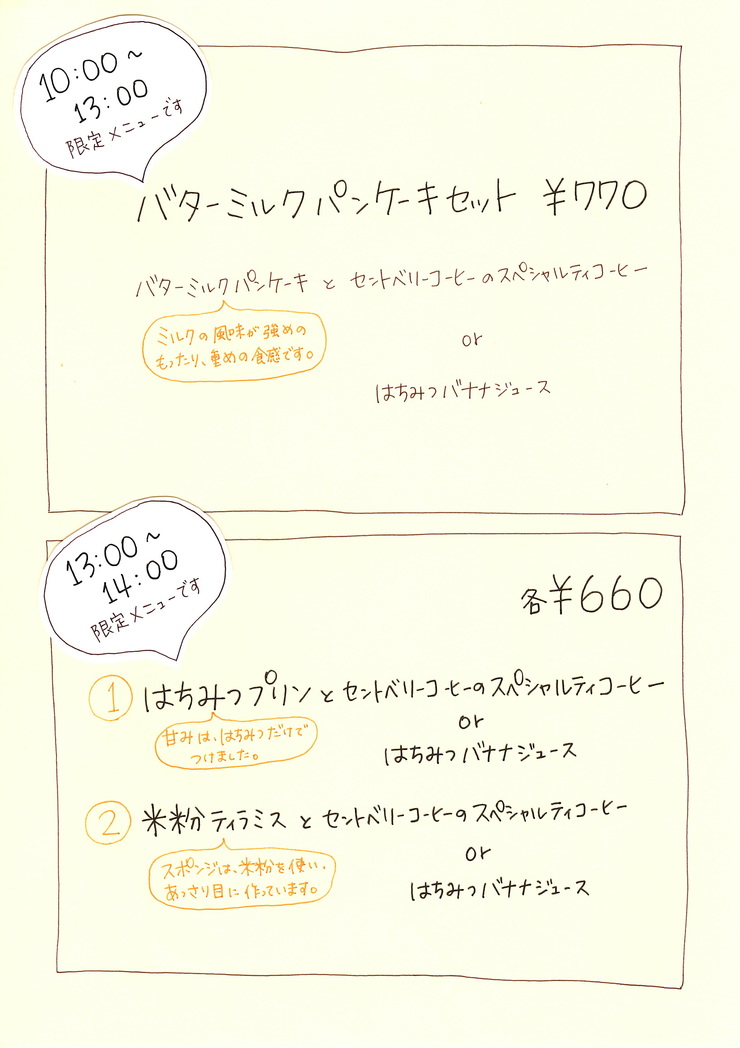 10:00～
13:00
限定メニューです
バターミルクパンケーキセット ¥770
バターミルクパンケーキ と セントベリーコーヒーのスペシャルティコーヒー
ミルクの風味が強めの
もったり、重めの食感です。
or
はちみつバナナジュース
13:00～
14:00
限定メニューです
各¥660
① はちみつプリン と セントベリーコーヒーのスペシャルティコーヒー
甘みは、はちみつだけで
つけました。
or
はちみつバナナジュース
② 米粉ティラミス と セントベリーコーヒーのスペシャルティコーヒー
スポンジは、米粉を使い、
あっさり目に作っています。
or
はちみつバナナジュース